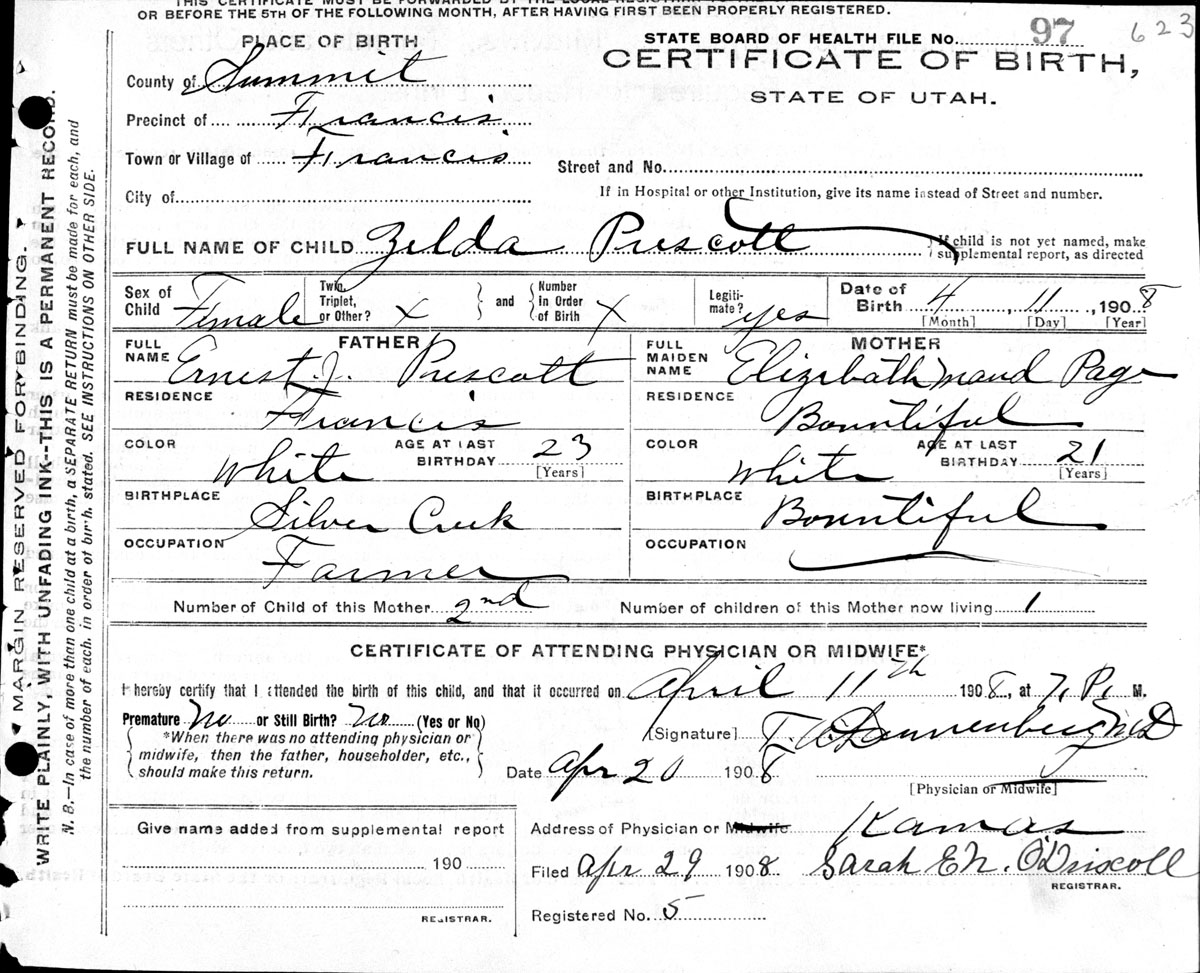 THIS CERTIFICATE MUST BE FORWARDED BY THE LOCAL REGISTRAR
OR BEFORE THE 5TH OF THE FOLLOWING MONTH, AFTER HAVING FIRST BEEN PROPERLY REGISTERED.
PLACE OF BIRTH
STATE BOARD OF HEALTH FILE No. 97 623
CERTIFICATE OF BIRTH,
STATE OF UTAH.
County of Summit
Precinct of Francis
Town or Village of Francis
Street and No.
City of
If in Hospital or other Institution, give its name instead of Street and number.
FULL NAME OF CHILD Zelda Prescott
If child is not yet named, make
supplemental report, as directed
Sex of Child Female
Twin, Triplet, or Other? X
and Number in Order of Birth X
Legiti-mate? yes
Date of Birth 4, 11, 1908
[Month] [Day] [Year]
FATHER
FULL NAME Ernest. J. Prescott
RESIDENCE Francis
COLOR White
AGE AT LAST BIRTHDAY 23
[Years]
BIRTHPLACE Silver Creek
OCCUPATION Farmer
MOTHER
FULL MAIDEN NAME Elizebath Maud Page
RESIDENCE Bountiful
COLOR White
AGE AT LAST BIRTHDAY 21
[Years]
BIRTHPLACE Bountiful
OCCUPATION
Number of Child of this Mother 2nd
Number of children of this Mother now living 1
CERTIFICATE OF ATTENDING PHYSICIAN OR MIDWIFE*
I hereby certify that I attended the birth of this child, and that it occurred on April 11th 1908, at 7, P, M.
Premature No or Still Birth? No (Yes or No)
*When there was no attending physician or
midwife, then the father, householder, etc.,
should make this return.
[Signature] Dannenberg MD
Date Apr 20 1908
[Physician or Midwife]
Give name added from supplemental report
190
REGISTRAR.
Address of Physician or Midwife Kamas
Filed Apr 29 1908 Sarah E N. O'Driscoll
REGISTRAR.
Registered No. 5
MARGIN RESERVED FOR BINDING.
WRITE PLAINLY, WITH UNFADING INK--THIS IS A PERMANENT RECORD.
N. B.—In case of more than one child at a birth, a SEPARATE RETURN must be made for each, and
the number of each, in order of birth, stated. SEE INSTRUCTIONS ON OTHER SIDE.